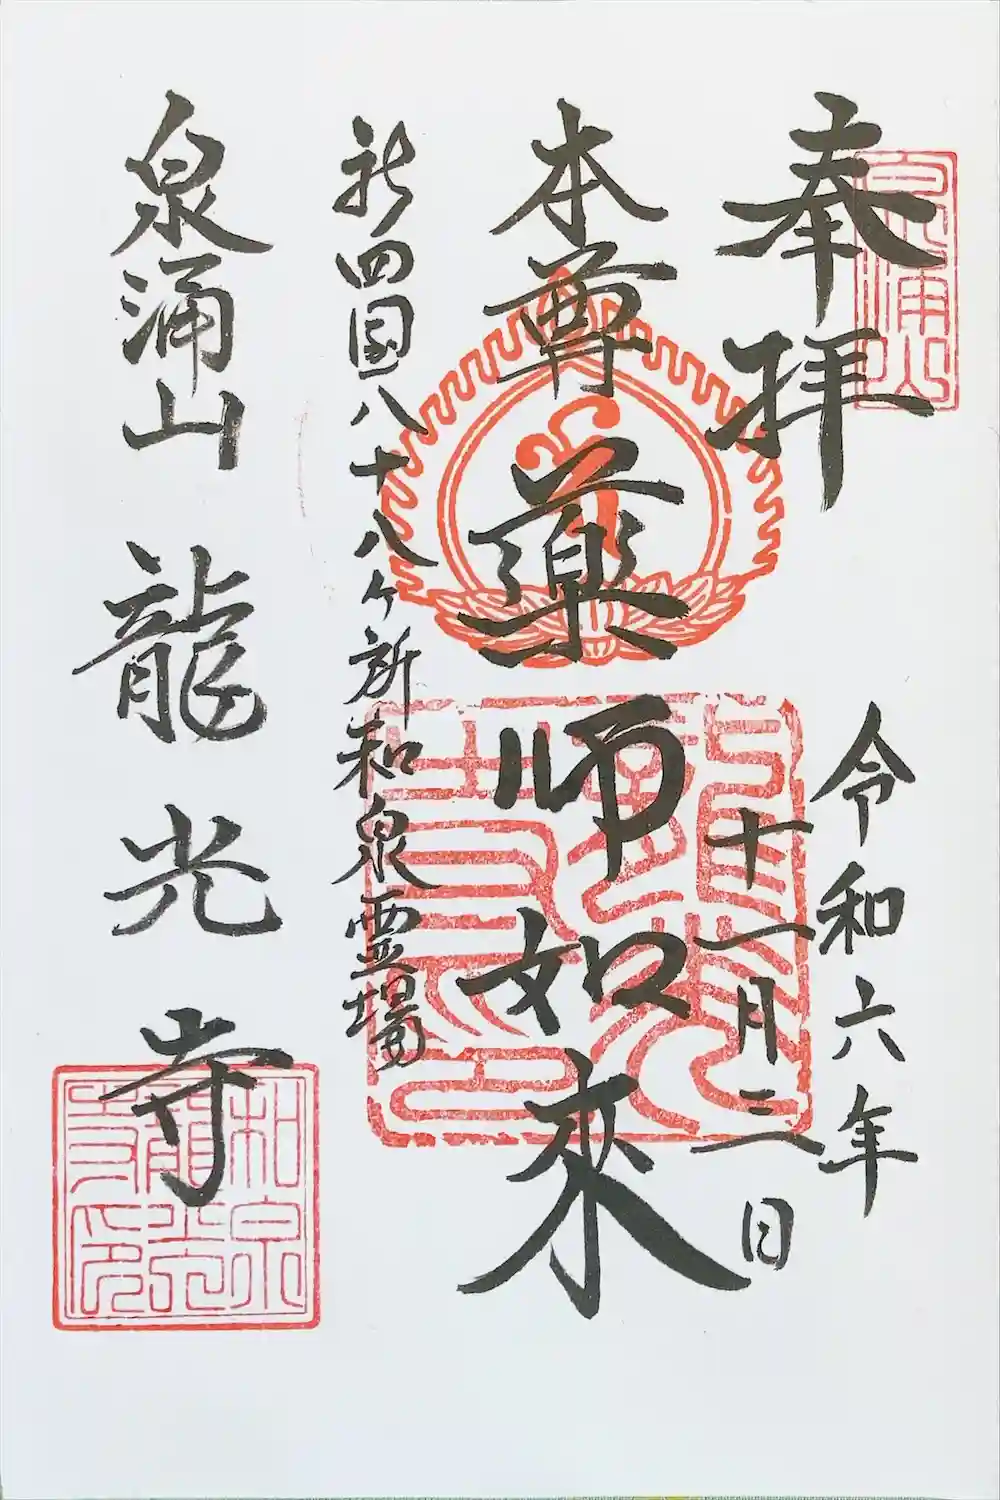 奉拝
泉涌山
令和六年
十一月三日
本尊薬師如来
新四国八十八ヶ所和泉霊場
泉涌山 龍光寺
和泉
龍光
寺印